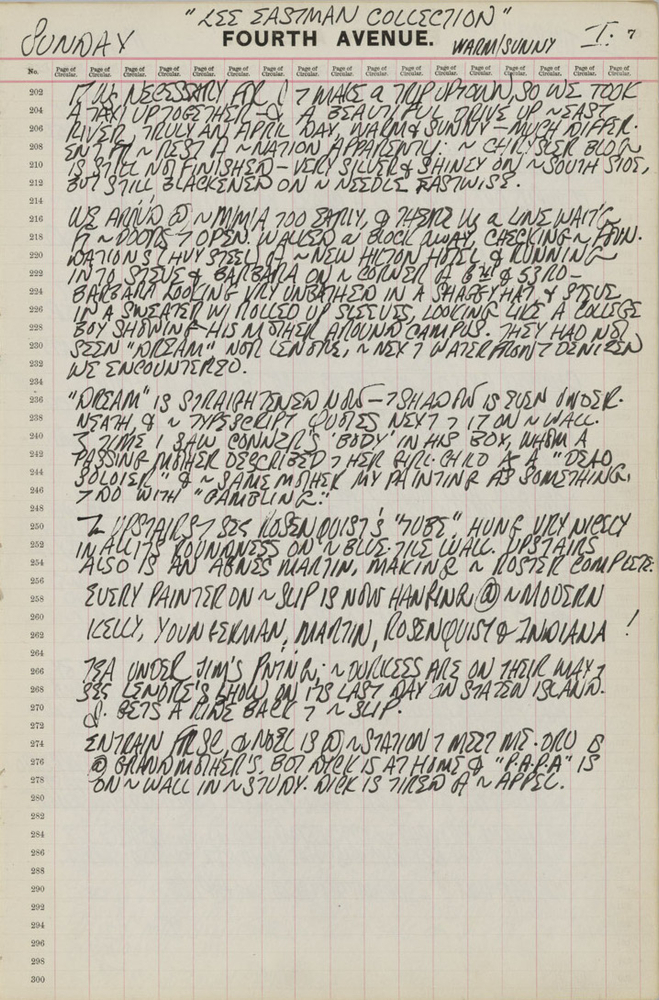 "LEE EASTMAN COLLECTION"
SUNDAY FOURTH AVENUE. WARM/SUNNY I. 7
No. Page of Circular. Page of Circular. Page of Circular. Page of Circular. Page of Circular. Page of Circular. Page of Circular. Page of Circular. Page of Circular. Page of Circular. Page of Circular. Page of Circular. Page of Circular. Page of Circular. Page of Circular. Page of Circular.
202 NECESSARY FR J 7 MAKE A TRIP UPTOWN, SO WE TOOK
204 A TAXI UP TOGETHER — A BEAUTIFUL DRIVE UP ~ EAST
206 RIVER, TRULY AN APRIL DAY, WARM & SUNNY — MUCH DIFFER-
208 ENT FR ~ REST ~ NATION APPARENTLY. ~ CHRYSLER BLDG
210 IS STILL NOT FINISHED — VERY SILVER & SHINEY ON ~ SOUTH SIDE,
212 BUT STILL BLACKENED ON ~ NEEDLE EASTWISE.
214
216 WE @ ~ TOO EARLY, & THERE A LINE WAIT'G
218 ~ DOORS 7 OPEN. WALKED A BLOCK AWAY, CHECKING ~ FOUN-
220 DATIONS ~ NEW HILTON HOTEL & RUNNING
222 INTO STEVE & BARBARA ON ~ CORNER 6TH & 53RD —
224 BARBARA LOOKING VRY UNBATHED IN A SHAGGY HAT & STEVE
226 IN A SWEATER W/ ROLLED UP SLEEVES, LOOKING LIKE A COLLEGE
228 BOY SHOWING HIS MOTHER AROUND CAMPUS. THEY HAD NOT
230 SEEN "DREAM" NOR LENORE, ~ NEXT WATERFRONT DENIZEN
232 WE ENCOUNTERED.
234
236 "DREAM" IS STRAIGHTENED NOW — 7 SHADOW IS EVEN UNDER-
238 NEATH, & ~ TYPESCRIPT QUOTES NEXT 7 IT ON ~ WALL.
240 TIME I SAW CONNER'S 'BODY' IN HIS BOX, WHOM A
242 PASSING MOTHER DESCRIBED 7 HER GIRL-CHILD AS A "DEAD
244 SOLDIER" & ~ SAME MOTHER MY PAINTING AS SOMETHING,
246 7 DO WITH "GAMBLING."
248
250 UPSTAIRS 7 SEE ROSENQUIST'S "TUBE" HUNG VRY NICELY
252 IN ALL ITS ROUNDNESS ON ~ BLUE-TILE WALL. UPSTAIRS
254 ALSO IS AN AGNES MARTIN, MAKING ~ ROSTER COMPLETE:
256
258 EVERY PAINTER ON ~ SLIP IS NOW HANGING @ ~ MODERN
260
262 KELLY, YOUNGERMAN, MARTIN, ROSENQUIST & INDIANA !
264
266 TEA UNDER JIM'S PNTING; ~ DURKEES ARE ON THEIR WAY 7
268 SEE LENORE'S SHOW ON ITS LAST DAY ON STATEN ISLAND.
270 J. GETS A RIDE BACK 7 ~ SLIP.
272
274 ENTRAIN FR SC, & NOEL IS @ ~ STATION 7 MEET ME. DRU IS
276 @ GRANDMOTHER'S. BUT DICK IS AT HOME & "P.A.P.A" IS
278 ON ~ WALL IN ~ STUDY. DICK IS TIRED ~
280
282
284
286
288
290
292
294
296
298
300